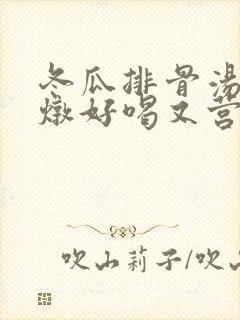 冬瓜排骨汤
燉好喝又营
吹山莉子/吹山